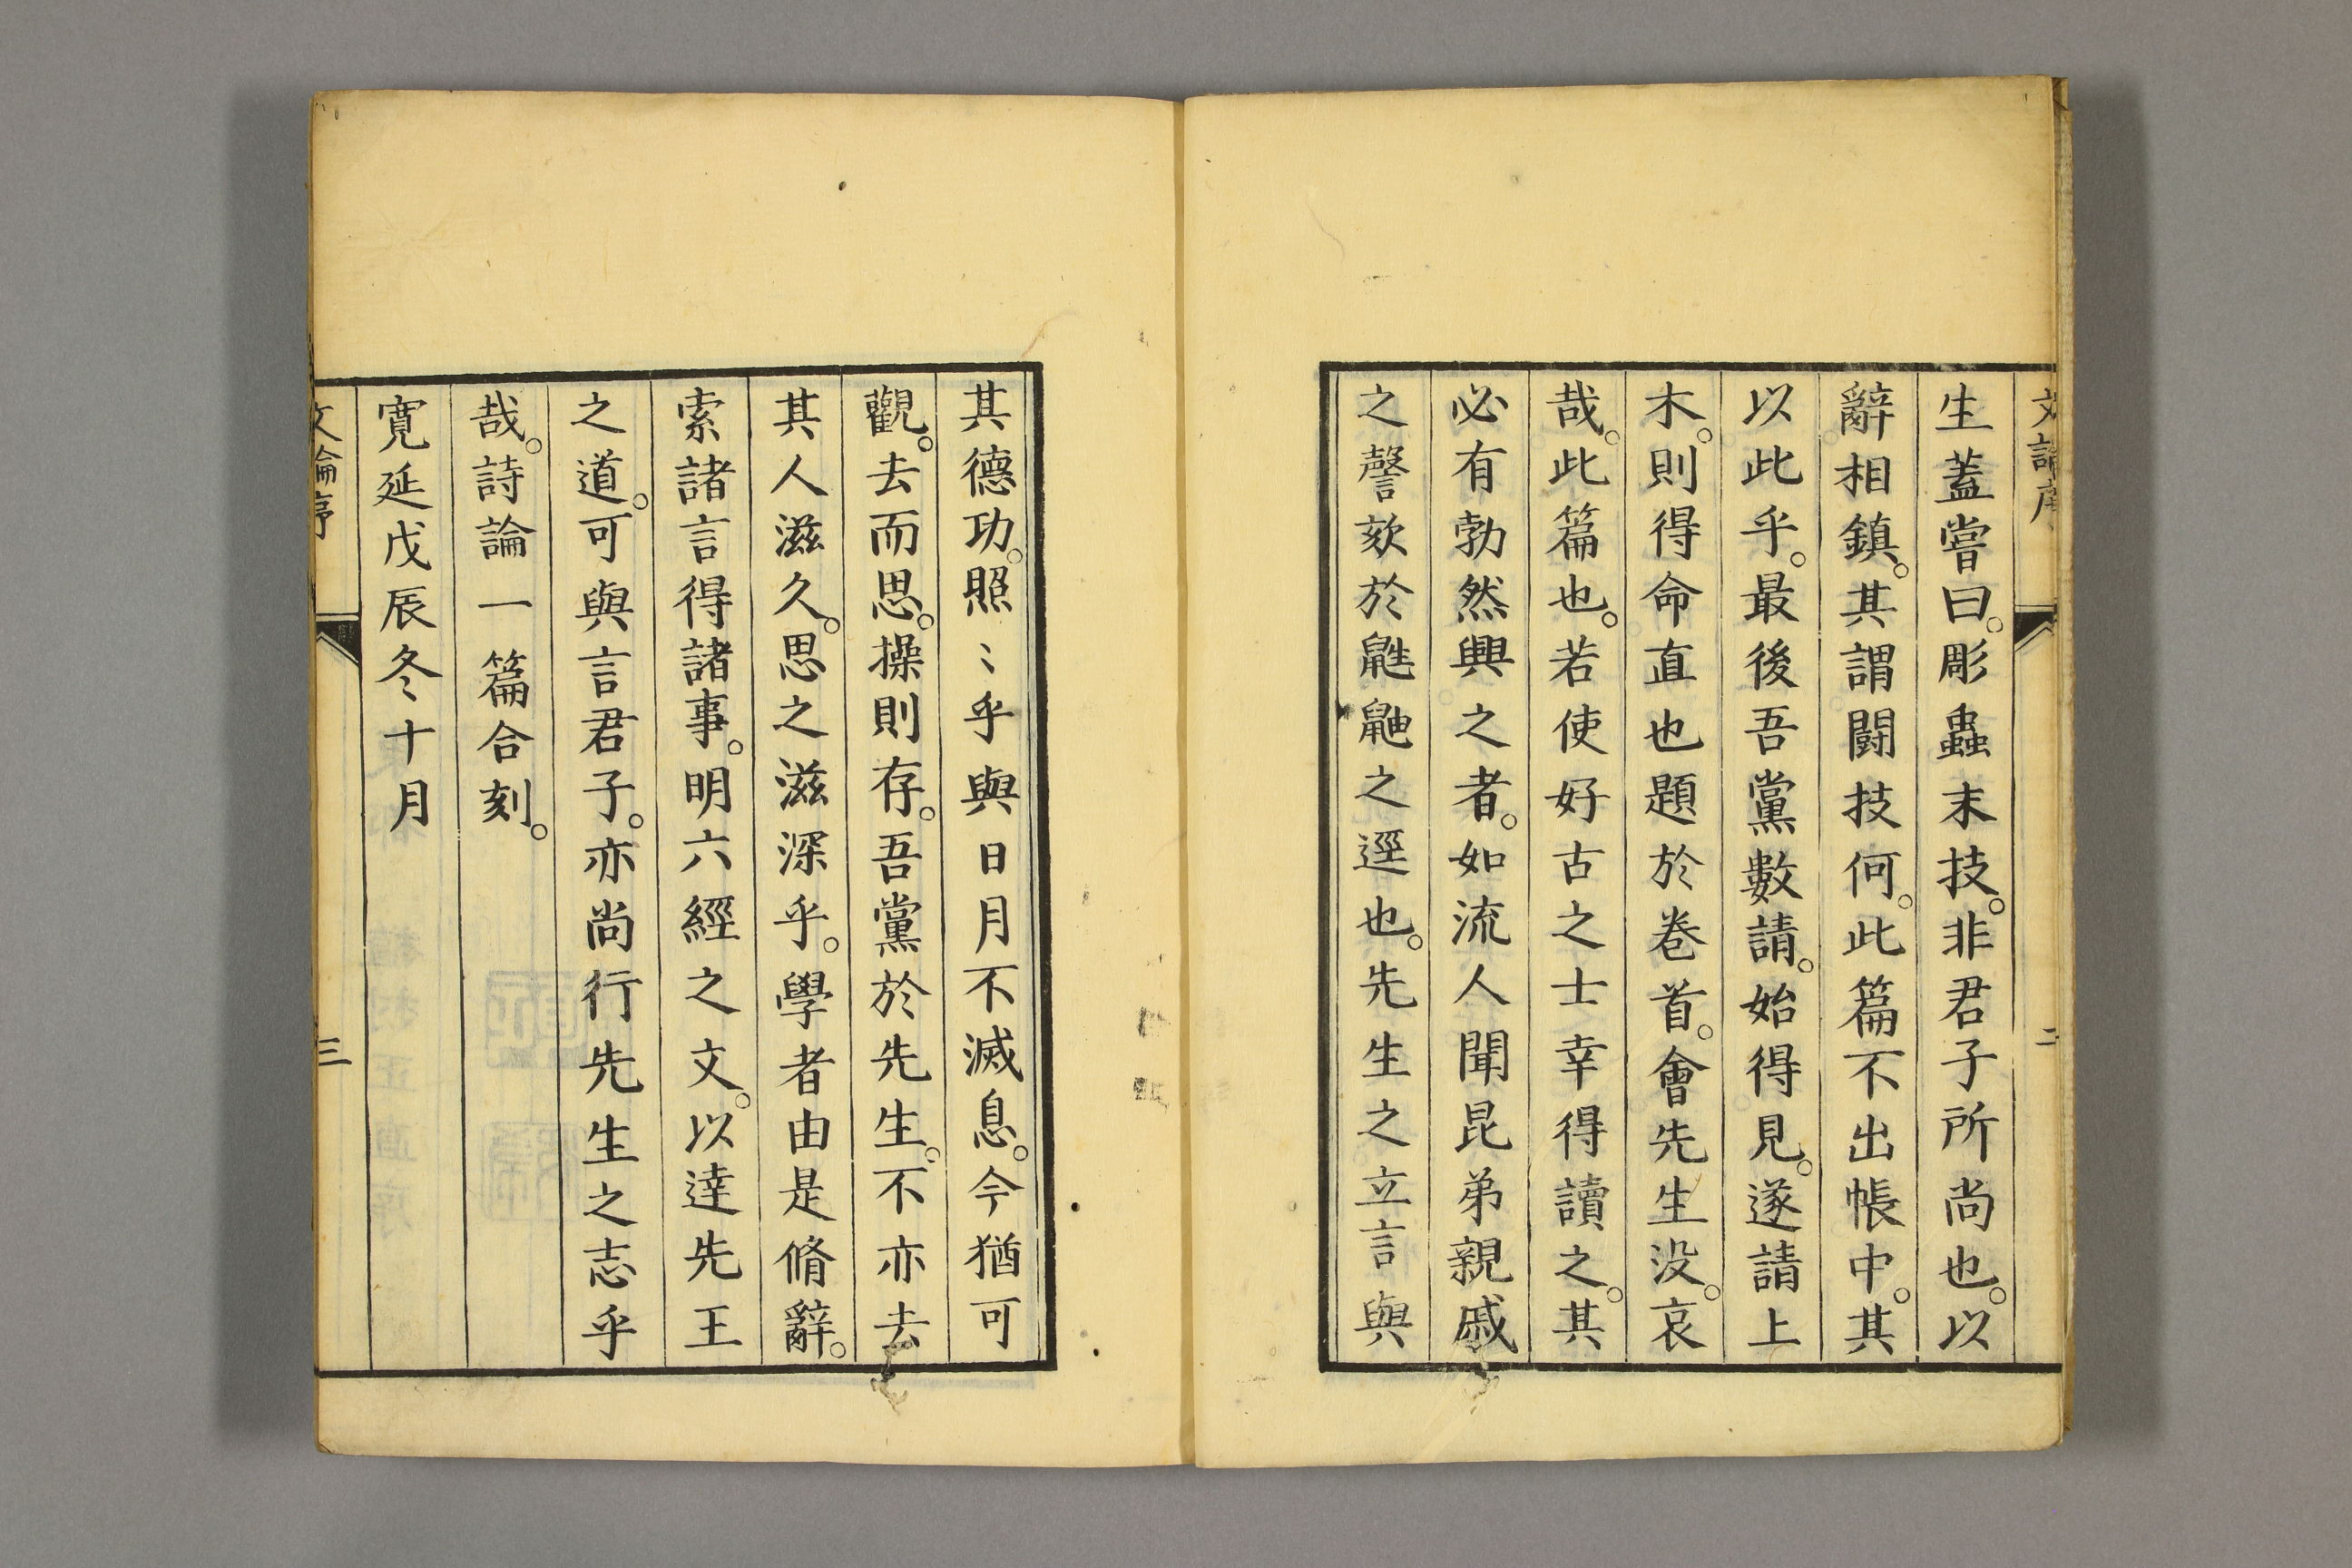 生蓋嘗曰。彫蟲末技。非君子所尚也。以
辭相鎮。其謂闘技何。此篇不出帳中。其
以此乎。最後吾黨數請。始得見。遂請上
木。則得命直也題於卷首。會先生没。哀
哉。此篇也。若使好古之士幸得讀之。其
必有勃然興之者。如流人聞昆弟親戚
之謦欬於鼪鼬之逕也。先生之立言與
二
其德功。照〻乎與日月不滅息。今猶可
觀。去而思。操則存。吾黨於先生。不亦去
其人滋久。思之滋深乎。學者由是脩辭。
索諸言得諸事。明六經之文。以達先王
之道。可與言君子。亦尚行先生之志乎
哉。詩論一篇合刻。
寛延戊辰冬十月
文論序
三